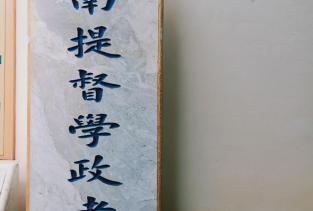 南提督學政